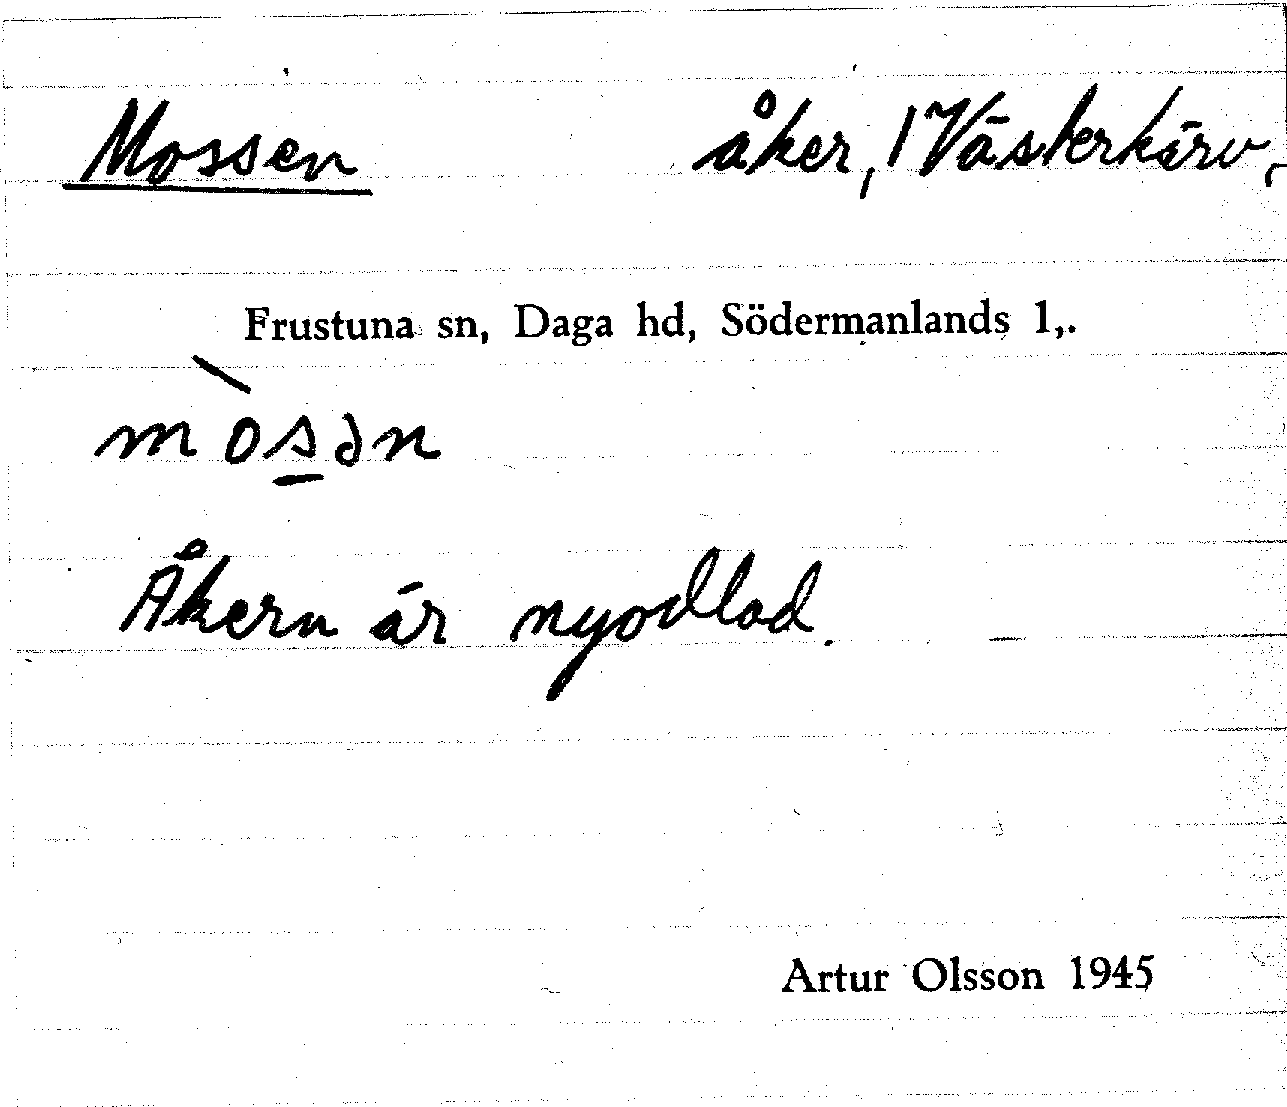 Mossen åker, 1 Västerkärv,
Frustuna sn, Daga hd, Södermanlands l,.
mòs̲ən
Åkern är nyodlad.
Artur Olsson 1945